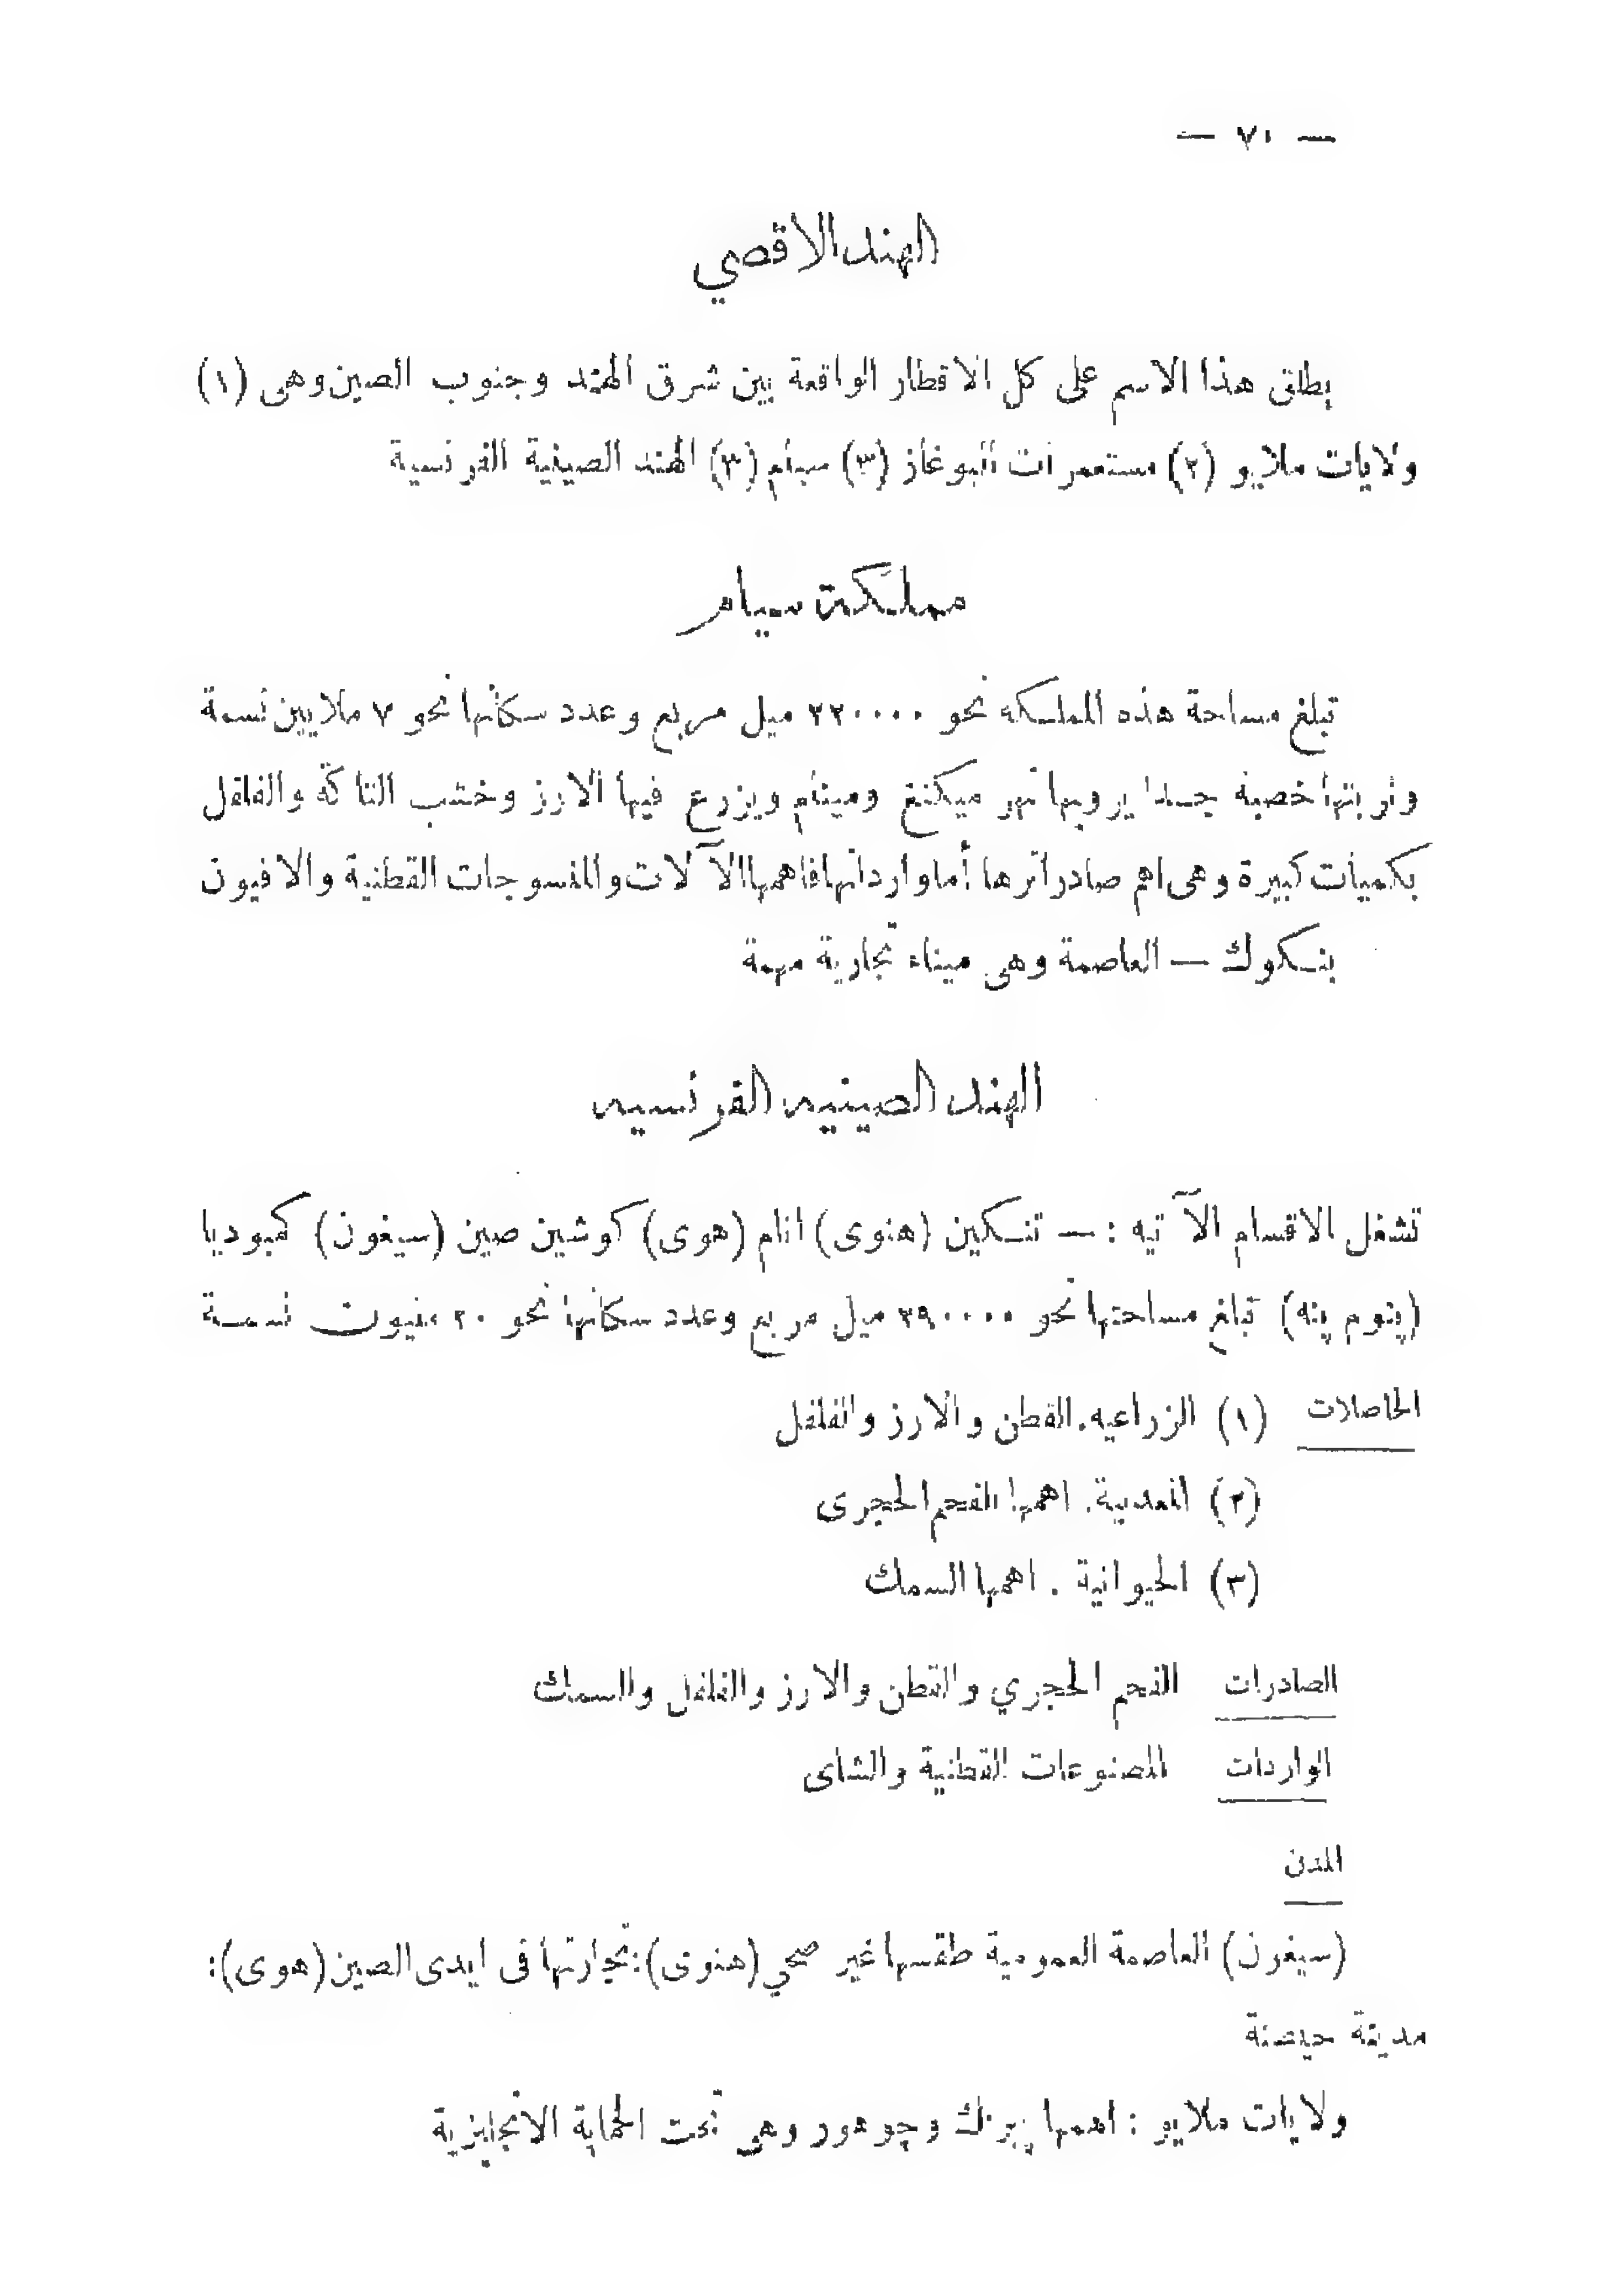 — ٧٠ —
الهند الاقصي
يطلق هذا الاسم على كل الاقطار الواقعة بين شرق الهند وجنوب الصين وهى (١)
ولايات ملايو (٢) مستعمرات البوغاز (٣) سيام (٣) الهند الصينية الفرنسية
مملكة سيام
تبلغ مساحة هذه المملكه نحو ٢٢٠٠٠٠ ميل مربع وعدد سكانها نحو ٧ ملايين نسمة
وتربتها خصبة جدا يرويها نهر ميكنغ ومينام ويزرع فيها الارز وخشب التاكة والفلفل
بكميات كبيرة وهى اهم صادراترها أما وارداتها فاهمها الآلات والمنسوجات القطنية والافيون
بنكوك — العاصمة وهى ميناء تجارية مهمة
الهند الصينيه الفرنسيه
تشغل الاقسام الآتيه : — تنكين (هنوى) انام (هوى) كوشين صين (سيغون) كمبوديا
(پنوم پنه) تبلغ مساحتها نحو ٢٩٠٠٠٠ ميل مربع وعدد سكانها نحو ٢٠ مليون نسمة
الحاصلات (١) الزراعيه. القطن والارز والفلفل
(٢) المعدنية. اهمها الفحم الحجرى
(٣) الحيوانية . اهمها السمك
الصادرات الفحم الحجري والقطن والارز والفلفل والسمك
الواردات المصنوعات القطنية والشاى
المدن
(سيغون) العاصمة العمومية طقسها غير صحي (هنوى): تجارتها فى ايدى الصين (هوى):
مدينة حيصنة
ولايات ملايو : اهمها پيرك وجوهور وهى تحت الحماية الانجليزية